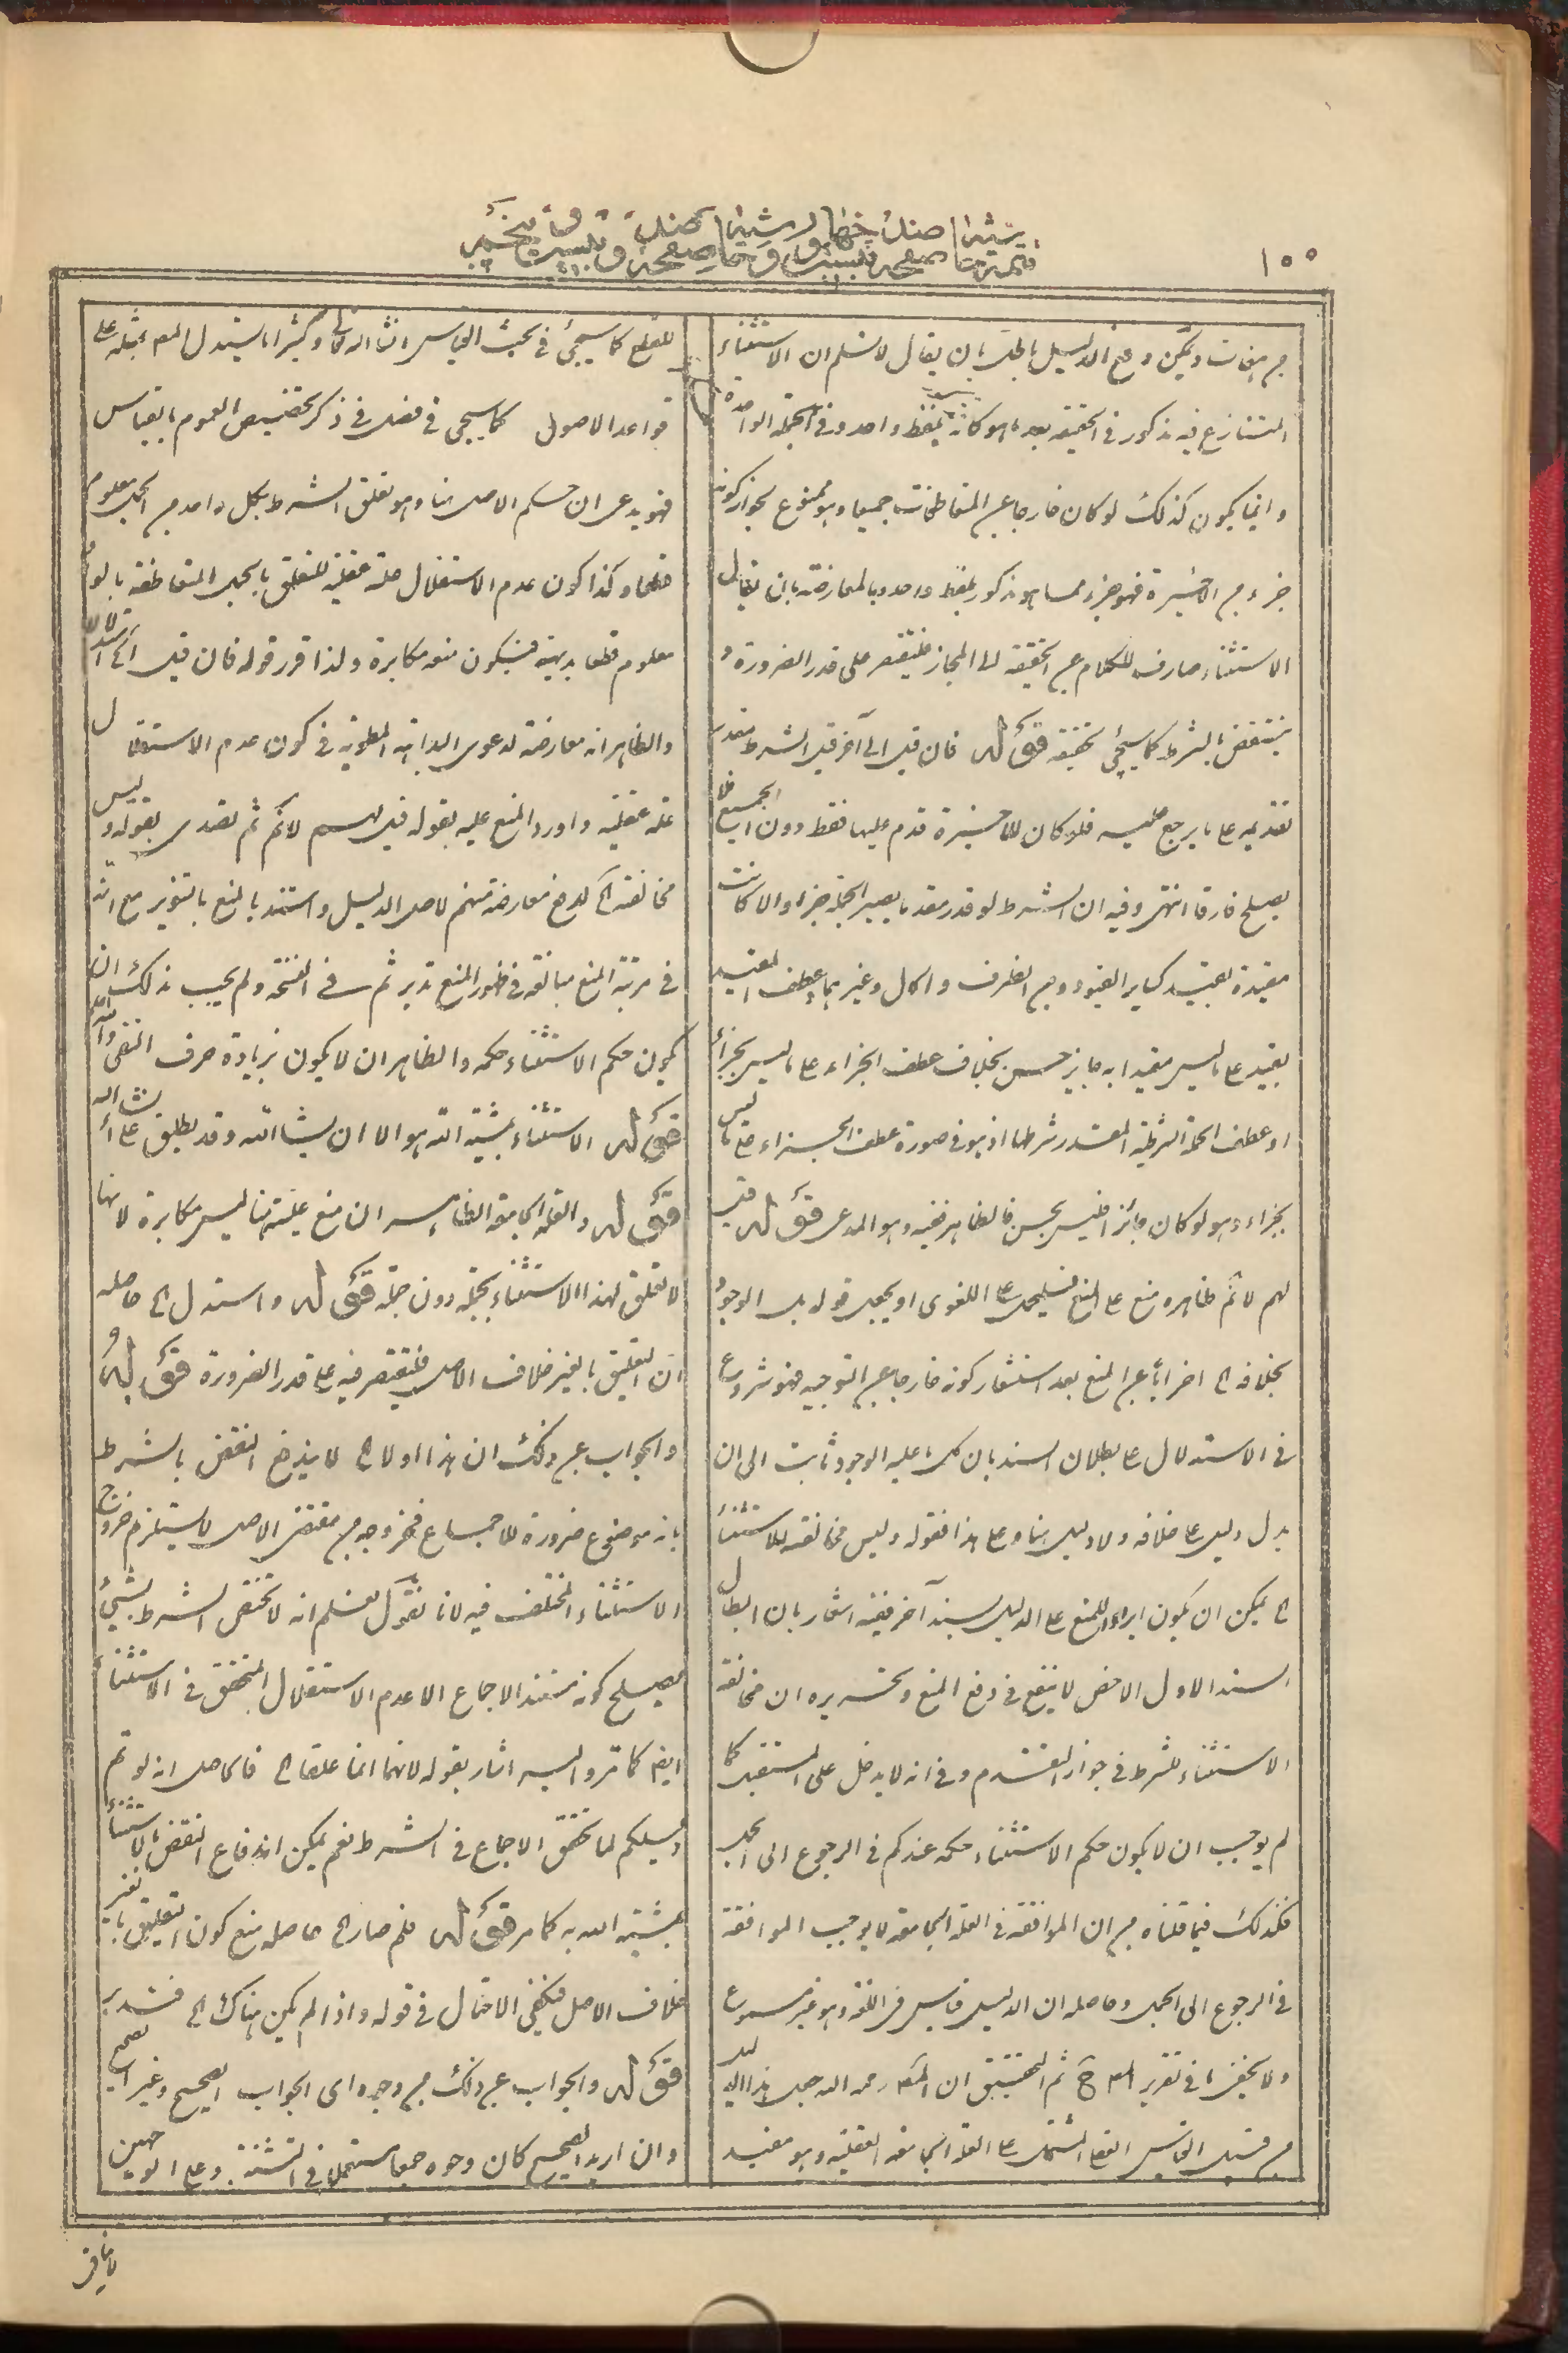 ١٥٥
من هفات ويمكن دفع الدليل بالحل بان يقال لا نسلم ان الاستثناء
المتنازع فيه مذكور في الحقيقة بعد ما هو كانه بلفظ واحد وفي الجملة الواحدة
وانما يكون كذلك لو كان خارجا عن المتعاطفات جميعا وهو ممنوع لجواز كونه
جزء من الاخيرة فهو جزء مما هو مذكور بلفظ واحد وبالمعارضة بان يقال
الاستثناء صارف للكلام عن الحقيقة الى المجاز فيقتصر على قدر الضرورة و
ينتقض بالشرط كما سيجئ تحقيقه قوله فان قيل الى آخر قيل الشرط مقدر
تقديمه على ما يرجع اليه فلو كان للاخيرة قدم عليها فقط دون الجميع فلا
يصلح فارقا انتهى وفيه ان الشرط لو قدر مقدما يصير الجملة جزاء والا كانت
مقيدة بقيد كساير القيود ومع الظرف والحال وغيرهما وعطف المقيد
بقيد على ما ليس مقيدا به جايز حسن بخلاف عطف الجزاء على ما ليس بجزاء
او عطف الجملة الشرطية المقدر شرطها اذ هو في صورة عطف الجزاء على ما ليس
بجزاء وهو لو كان جائزا فليس بحسن فالظاهر نفيه وهو المدعى قوله قيل
لهم لا نم ظاهره منع على المنع فليحمل على اللغوى او يجعل قوله بل الوجود
بخلافه الخ اضرابا عن المنع بعد استشعار كونه خارجا عن التوجيه فهو شروع
في الاستدلال على بطلان السند بان كل ما عليه الوجود ثابت الى ان
يدل دليل على خلافه ولا دليل هنا وعلى هذا فقوله وليس مخالفته للاستثناء
الخ يمكن ان يكون ايراد للمنع على الدليل بسند آخر ففيه اشعار بان ابطال
السند الاول الاخص لا ينفع في دفع المنع وتحريره ان مخالفة
الاستثناء للشرط في جواز التقدم وفي انه لا يدخل على المستقبل كما
لم يوجب ان لا يكون حكم الاستثناء حكمه عندكم في الرجوع الى الجمل
فكذلك فيما قلناه من ان الموافقة في العلة الجامعة لا يوجب الموافقة
في الرجوع الى الجمل وحاصله ان الدليل قياس في اللغة وهو غير مسموع
ولا يخفى ما في تقرير المص ح ثم التحقيق ان المص رحمه الله جعل هذا الدليل
من قبيل القياس القطعي المشتمل على العلة الجامعة العقلية وهو مفيد
للقطع كما سيجئ في بحث القياس انشاء الله تعالى وكثيرا ما يستدل المص بمثله على
قواعد الاصول كما سيجي في فصل في ذكر تخصيص العموم بالقياس
فهو يدعى ان حكم الاصل هنا وهو تعلق الشرط بكل واحد من الجمل معلوم
قطعا وكذا كون عدم الاستقلال علة عقلية للتعلق بالجمل المتعاطفة بالواو
معلوم قطعا بديهية فيكون منعه مكابرة ولذا قرر قوله فان قيل الخ استدلالا
والظاهر انه معارضة لدعوى البداهة المطوية في كون عدم الاستقلال
علة عقلية واورد المنع عليه بقوله قيل لهم لا نم ثم تصدى بقوله وليس
مخالفته الخ لدفع معارضة منهم لاصل الدليل واستند بالمنع بالتنوير مع انه
في مرتبة المنع مبالغة في ظهور المنع تدبر ثم في النسخة ولم يجب ذلك ان
يكون حكم الاستثناء حكمه والظاهر ان لا يكون بزيادة حرف النفى والله اعلم
قوله الاستثناء بمشية الله هو الا ان يشاء الله وقد يطلق على انشاء الله
قوله والعلة الجامعة الظاهر ان منع علية هنا ليس مكابرة لانها
لا تعلق لهذا الاستثناء بجملة دون جملة قوله واستدل الخ حاصله
ان التعليق بالغير خلاف الاصل فيقتصر فيه على قدر الضرورة قوله و
والجواب عن ذلك ان هذا اولا الخ لا يندفع النقض بالشرط
بانه موضوع ضرورة للاجماع فخروجه من مقتضى الاصل لا يستلزم خروج
الاستثناء المختلف فيه لانا نقول نعلم انه لا تختص الشرط بشيئ
يصلح كونه مستند الاجماع الا عدم الاستقلال المتحقق في الاستثناء
ايضا كما مر واليه اشار بقوله لانهما انما علقا الخ فالحاصل انه لو تم
دليلكم لما تحقق الاجماع في الشرط نعم يمكن اندفاع النقض بالاستثناء
بمشية الله به كما مر قوله فلم صار الخ حاصله منع كون التعليق بالغير
خلاف الاصل فيكفى الاحتمال في قوله واذا لم يكن هناك الخ فتدبر
قوله والجواب عن ذلك من وجوه اى الجواب الصحيح وغير الصحيح
وان اريد الصحيح كان وجوه جمعا مستعملا في التثنية وعلى الوجهين